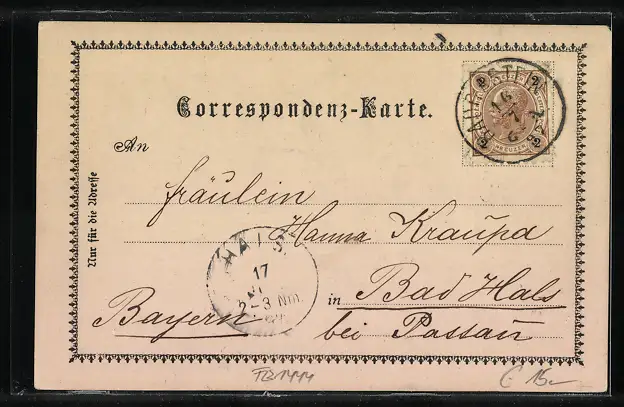 Correspondenz-Karte.
An
Fräulein
Hanna Kraupa
in Bad Hals
bei Passau
Bayern
Nur für die Adresse
2 2
KREUZER
16
7
HALS
17
2-3 Nm.
FB1444
C 15.-